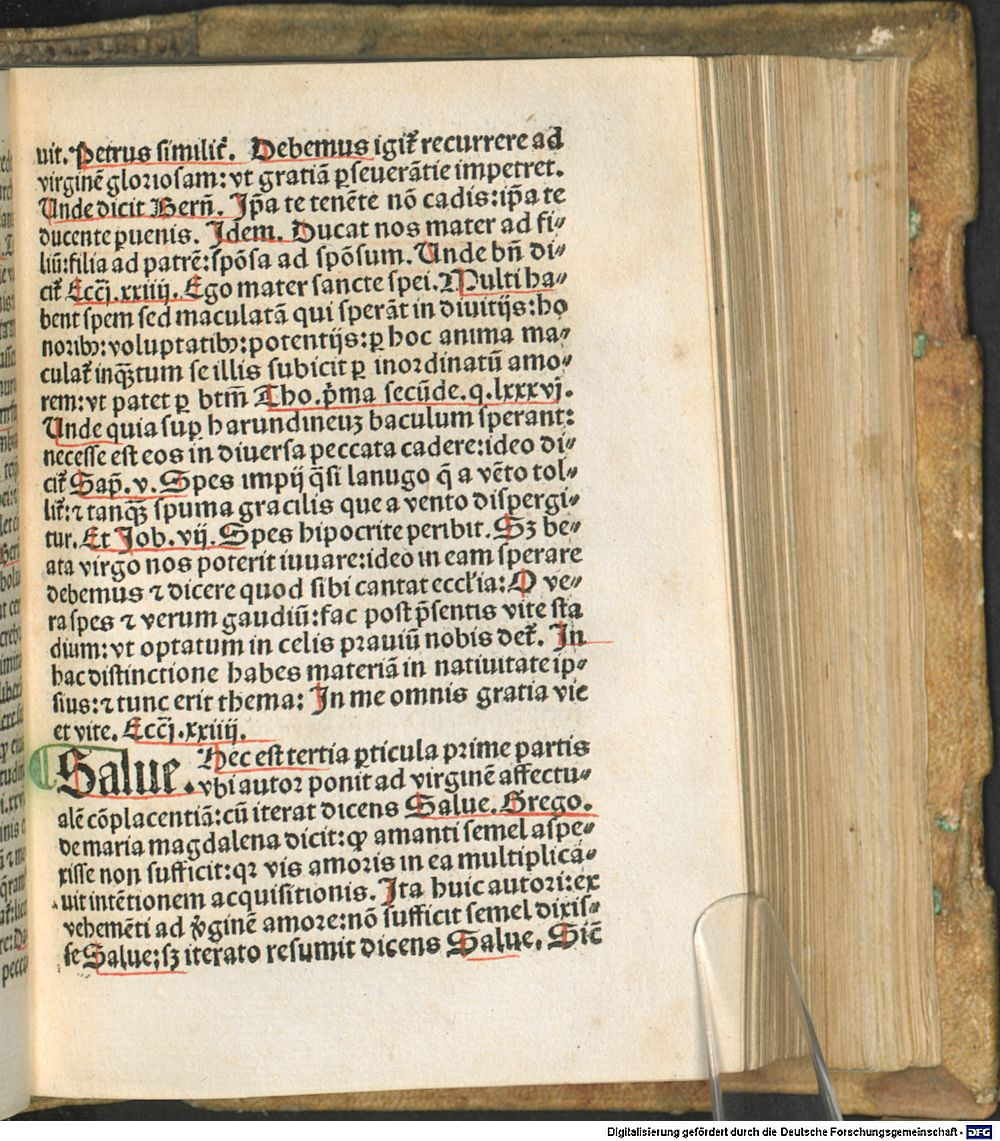 uit. Petrus similit̃. Debemus igit̃ recurrere ad
virginē gloriosam: vt gratiā ꝑseuerātie impetret.
Unde dicit Berñ. Ip̄a te tenēte nō cadis: ip̄a te
ducente puenis. Idem. Ducat nos mater ad fi⸗
liū: filia ad patrē: spōsa ad spōsum. Unde bñ di⸗
cit̃ Ecci̅. xxiiij. Ego mater sancte spei. Multi ha⸗
bent spem sed maculatā qui sperāt in diuitijs: ho
noribꝫ: voluptatibꝫ: potentijs: ꝑ hoc anima ma⸗
culat̃ inqꝫtum se illis subicit ꝑ inordinatū amo⸗
rem: vt patet ꝑ btm̄ Tho. p̄ma secūde. q. lxxxvj.
Unde quia suꝑ harundineuꝫ baculum sperant:
necesse est eos in diuersa peccata cadere: ideo di⸗
cit̃ Sap̄. v. Spes impij q̄si lanugo q̄ a vēto tol⸗
lit̃: ⁊ tanqꝫ spuma gracilis que a vento dispergi⸗
tur. Et Job. vij. Spes hipocrite peribit. Sꝫ be⸗
ata virgo nos poterit iuuare: ideo in eam sperare
debemus ⁊ dicere quod sibi cantat eccl'ia: O ve⸗
ra spes ⁊ verum gaudiū: fac post p̄sentis vite sta
dium: vt optatum in celis prauiū nobis det̃. In
hac distinctione habes materiā in natiuitate ip⸗
sius: ⁊ tunc erit thema: In me omnis gratia vie
et vite. Ecci̅. xxiiij.
Salue. Hec est tertia ꝑticula prime partis
vbi autor ponit ad virginē affectu⸗
alē cōplacentiā: cū iterat dicens Salue. Grego.
de maria magdalena dicit: ꝙ amanti semel aspe⸗
xisse non sufficit: qꝛ vis amoris in ea multiplica⸗
uit intētionem acquisitionis. Ita huic autori: ex
vehemēti ad v̓ginē amore: nō sufficit semel dixis⸗
se Salue: sꝫ iterato resumit dicens Salue. Sic̄
Digitalisierung gefördert durch die Deutsche Forschungsgemeinschaft - DFG